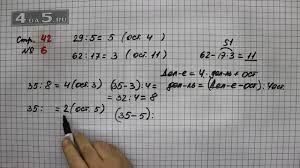 4 да 5.ru
Стр. 42
№ 6
29:5=5 (ост. 4)
62:17=3 (ост. 11)
51
62-17·3=11
Дел-е=4·дел-ль+ост
дел-ль=(Дел-е-ост):Част.
35:8=4(ост.3) (35-3):4=
=32:4=8
35: =2(ост. 5) (35-5):